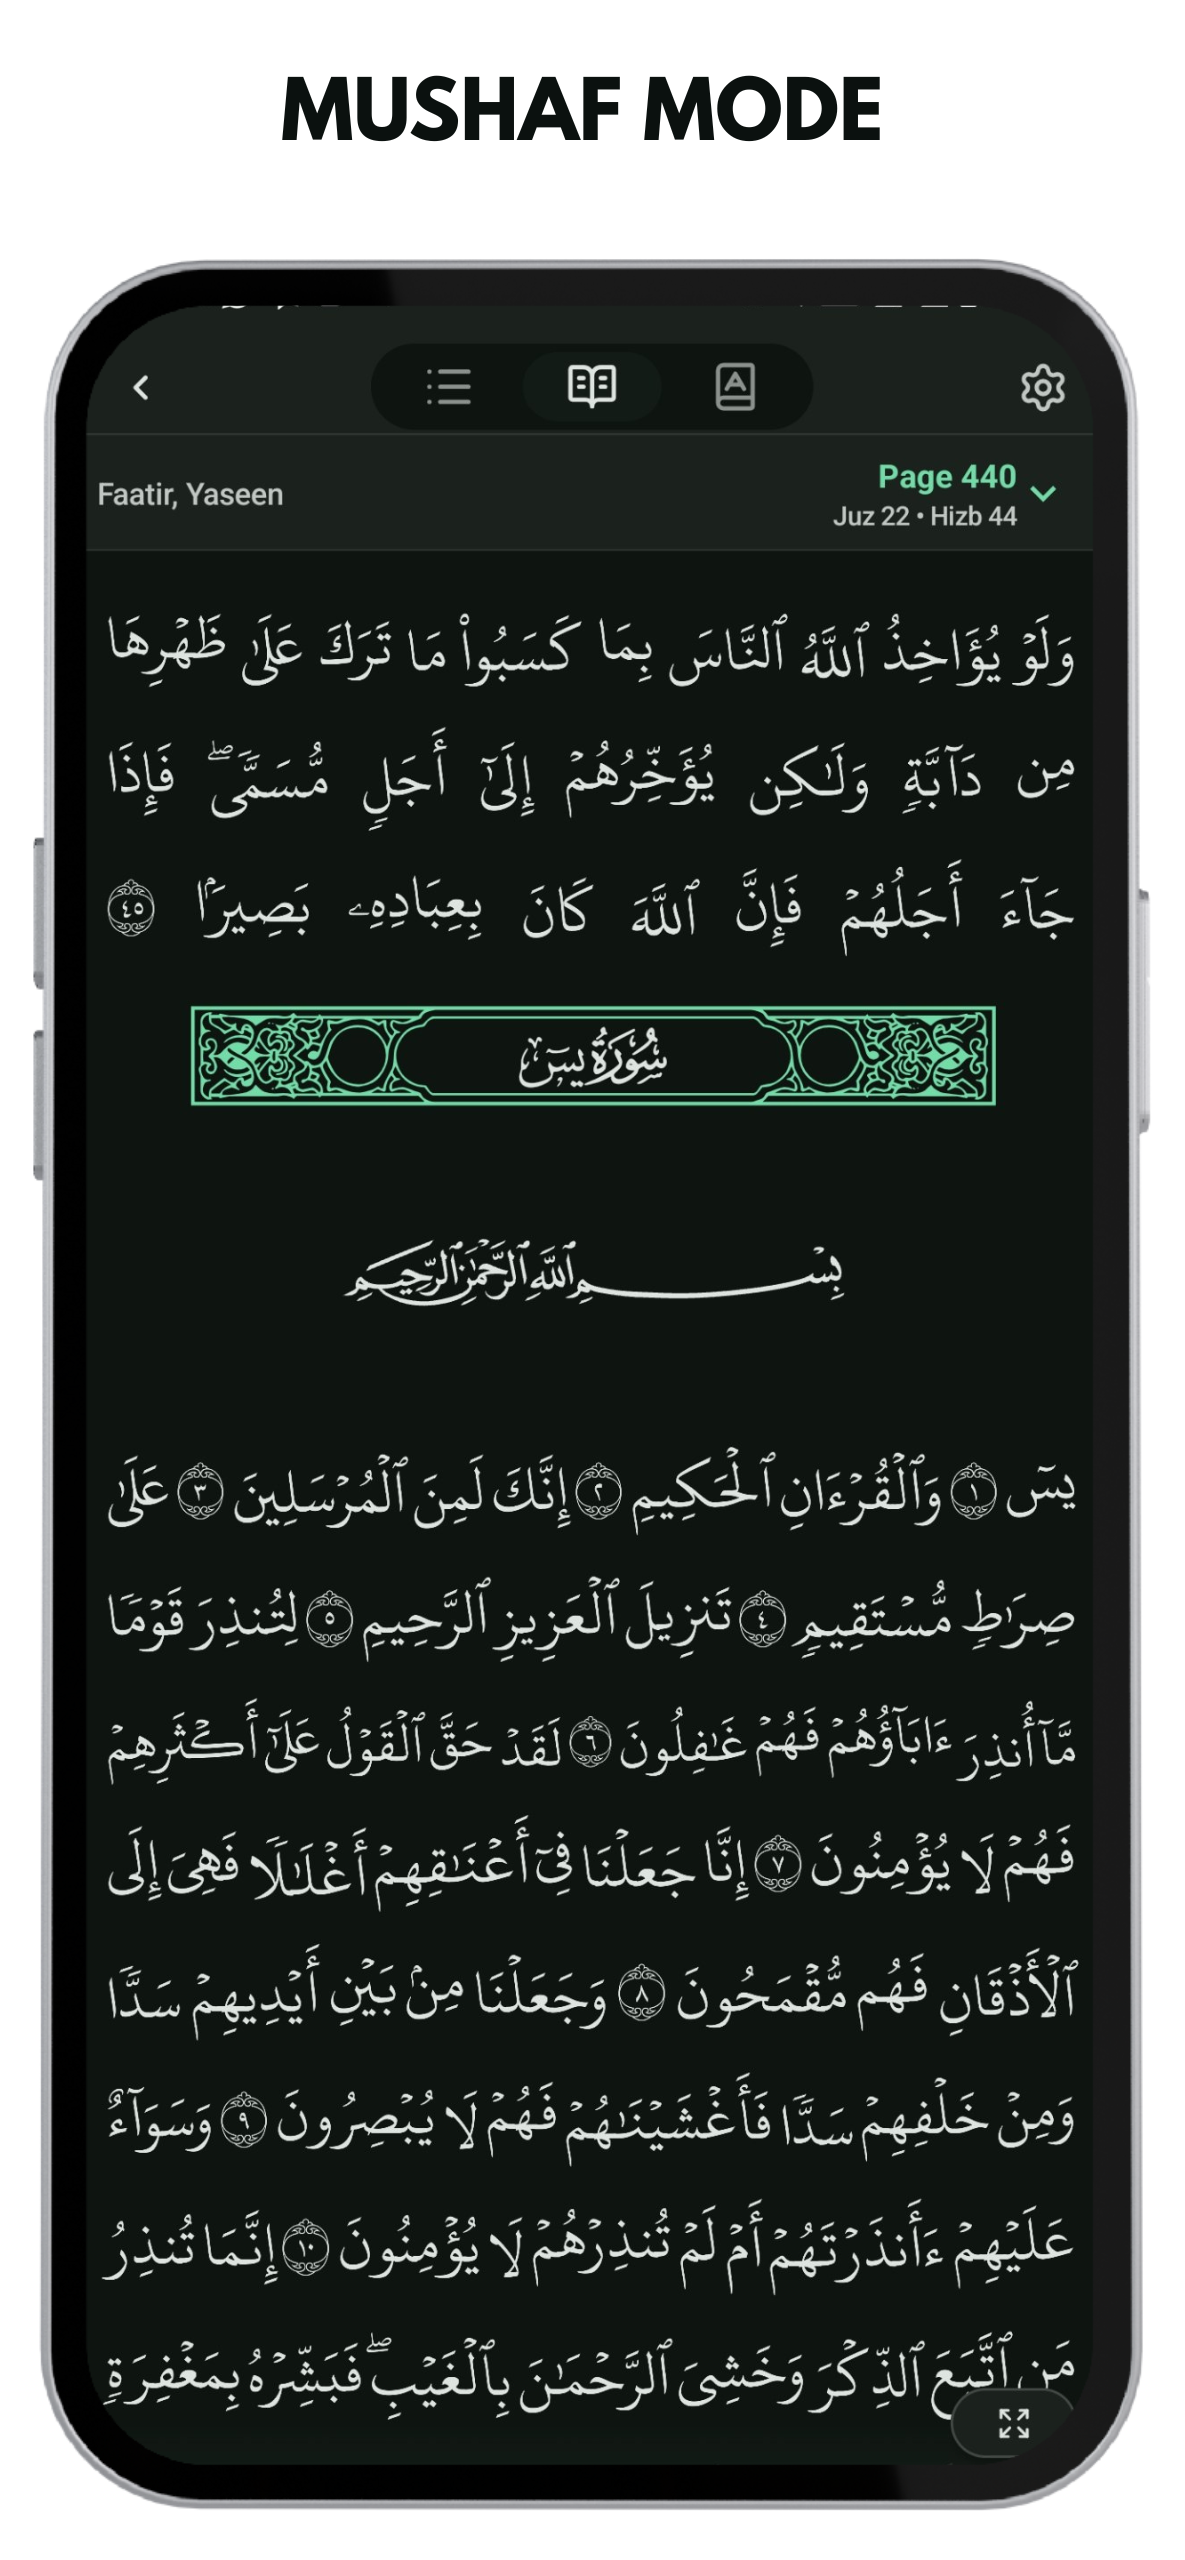 MUSHAF MODE
Faatir, Yaseen
Page 440
Juz 22 • Hizb 44
وَلَوۡ يُؤَاخِذُ ٱللَّهُ ٱلنَّاسَ بِمَا كَسَبُواْ مَا تَرَكَ عَلَىٰ ظَهۡرِهَا
مِن دَآبَّةٖ وَلَٰكِن يُؤَخِّرُهُمۡ إِلَىٰٓ أَجَلٖ مُّسَمّٗىۖ فَإِذَا
جَآءَ أَجَلُهُمۡ فَإِنَّ ٱللَّهَ كَانَ بِعِبَادِهِۦ بَصِيرَۢا ٤٥
سُورَةُ يسٓ
بِسۡمِ ٱللَّهِ ٱلرَّحۡمَٰنِ ٱلرَّحِيمِ
يسٓ ١ وَٱلۡقُرۡءَانِ ٱلۡحَكِيمِ ٢ إِنَّكَ لَمِنَ ٱلۡمُرۡسَلِينَ ٣ عَلَىٰ
صِرَٰطٖ مُّسۡتَقِيمٖ ٤ تَنزِيلَ ٱلۡعَزِيزِ ٱلرَّحِيمِ ٥ لِتُنذِرَ قَوۡمٗا
مَّآ أُنذِرَ ءَابَآؤُهُمۡ فَهُمۡ غَٰفِلُونَ ٦ لَقَدۡ حَقَّ ٱلۡقَوۡلُ عَلَىٰٓ أَكۡثَرِهِمۡ
فَهُمۡ لَا يُؤۡمِنُونَ ٧ إِنَّا جَعَلۡنَا فِيٓ أَعۡنَٰقِهِمۡ أَغۡلَٰلٗا فَهِيَ إِلَى
ٱلۡأَذۡقَانِ فَهُم مُّقۡمَحُونَ ٨ وَجَعَلۡنَا مِنۢ بَيۡنِ أَيۡدِيهِمۡ سَدّٗا
وَمِنۡ خَلۡفِهِمۡ سَدّٗا فَأَغۡشَيۡنَٰهُمۡ فَهُمۡ لَا يُبۡصِرُونَ ٩ وَسَوَآءٌ
عَلَيۡهِمۡ ءَأَنذَرۡتَهُمۡ أَمۡ لَمۡ تُنذِرۡهُمۡ لَا يُؤۡمِنُونَ ١٠ إِنَّمَا تُنذِرُ
مَنِ ٱتَّبَعَ ٱلذِّكۡرَ وَخَشِيَ ٱلرَّحۡمَٰنَ بِٱلۡغَيۡبِۖ فَبَشِّرۡهُ بِمَغۡفِرَةٖ